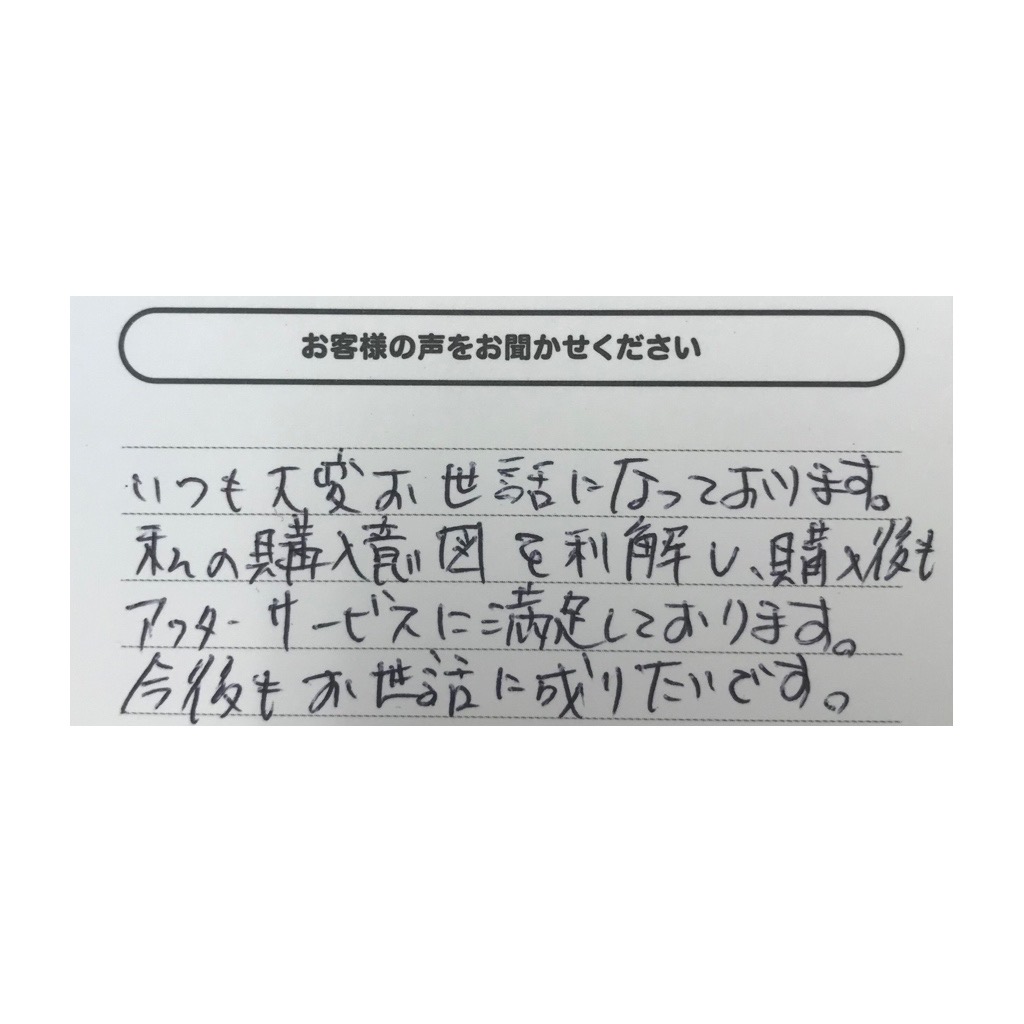 お客様の声をお聞かせください
いつも大変お世話になっております。
私の購入意図を利解し、購入後も
アフターサービスに満足しております。
今後もお世話に成りたいです。